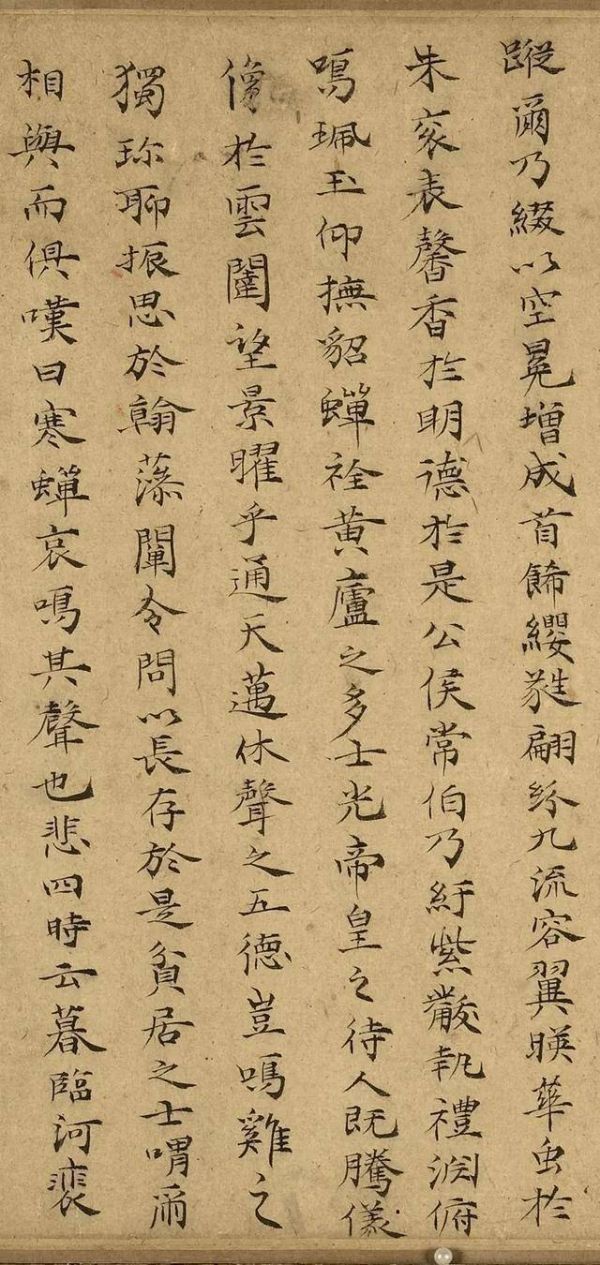 蹤爾乃綴以空冕增成首飾纓蕤翩紛九流容翼暎華虫於
朱衮表馨香於明德於是公侯常伯乃紆紫黻執禮淵俯
鳴珮玉仰撫貂蟬黄廬之多士光帝皇之待人既騰儀
像於雲闈望景曜乎通天邁休聲之五德豈鳴雞之
獨珎聊振思於翰藻闡令問以長存於是貧居之士喟爾
相與而俱嘆曰寒蟬哀鳴其聲也悲四時云暮臨河裵